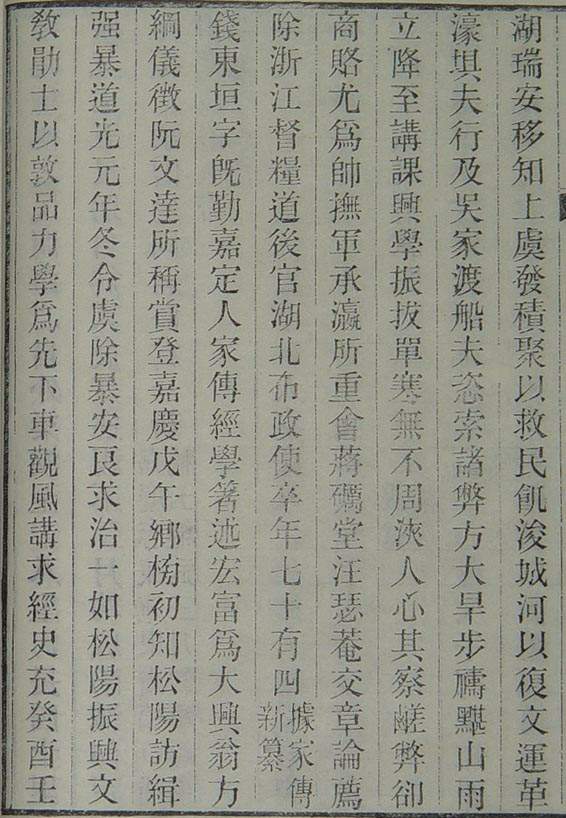 湖瑞安移知上虞發積聚以救民飢浚城河以復文運革
濠埧夫行及吳家渡船夫恣索諸弊方大旱步禱龗山雨
立降至講課興學振拔單寒無不周浹人心其察鹺弊卻
商賂尤爲帥撫軍承瀛所重會蔣礪堂汪瑟菴交章論薦
除浙江督糧道後官湖北布政使卒年七十有四據家傳新纂
錢東垣字旣勤嘉定人家傳經學箸述宏富爲大興翁方
綱儀徵阮文達所稱賞登嘉慶戊午鄉榜初知松陽訪緝
强暴道光元年冬令虞除暴安良求治一如松陽振興文
敎勛士以敦品力學爲先下車觀風講求經史充癸酉壬